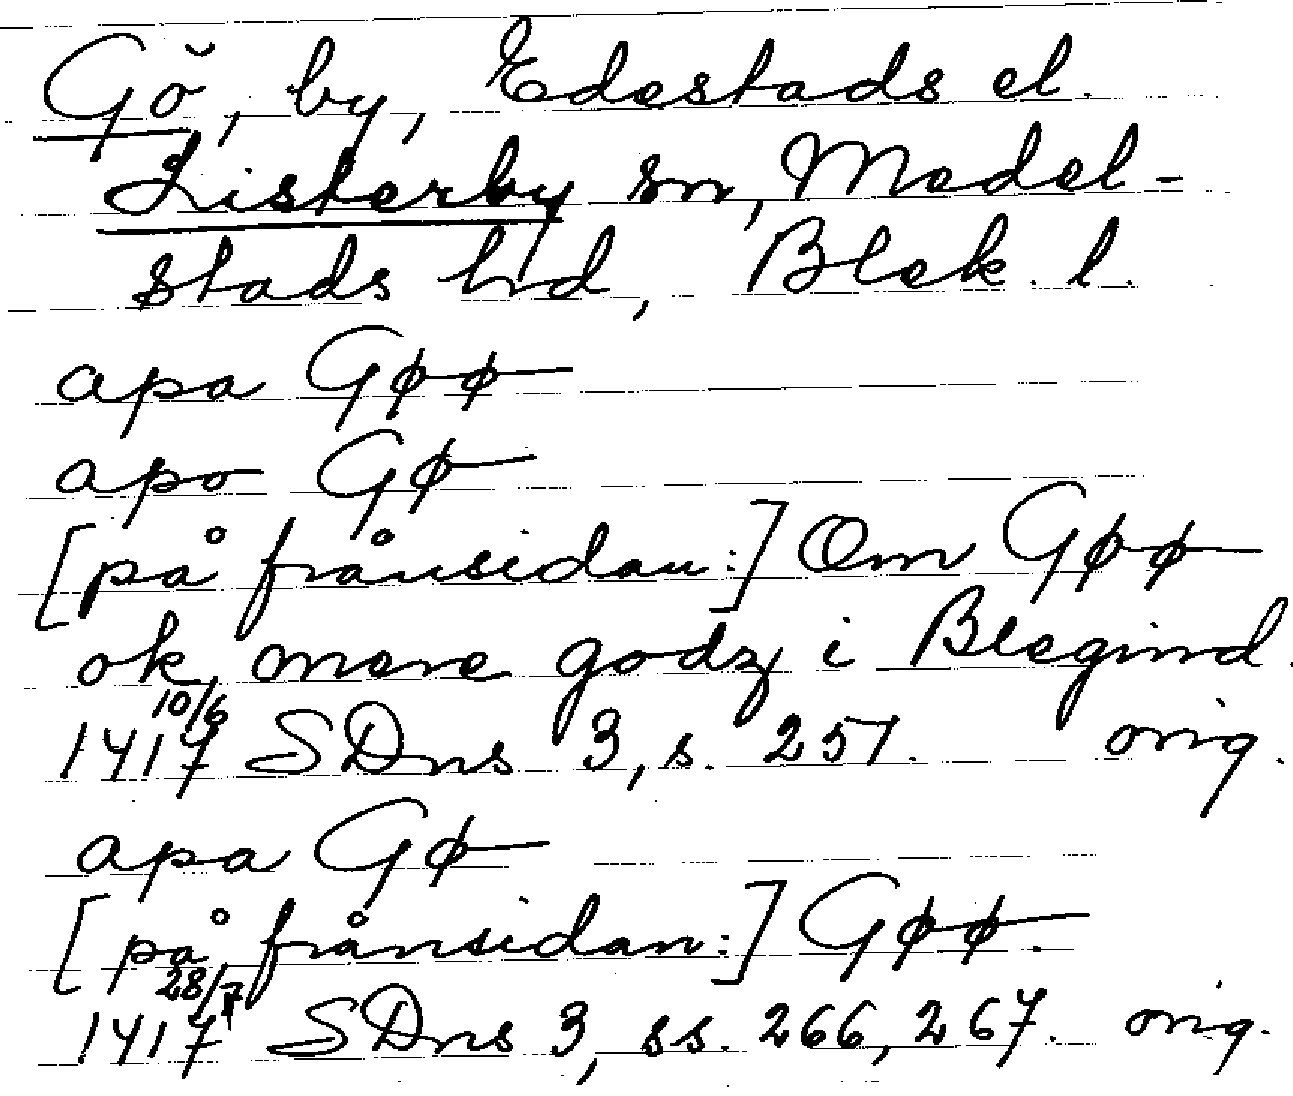 Gö, by, Edestads el.
Listerby sn, Medel-
stads hd, Blek. l.
apa Gøø
apo Gø
[på frånsidan:] Om Gøø
ok mere godz i Blegind.
10/6
1417 SDns 3, s. 257. orig.
apa Gø
[på frånsidan:] Gøø.
28/7
1417 SDns 3, ss. 266, 267. orig.